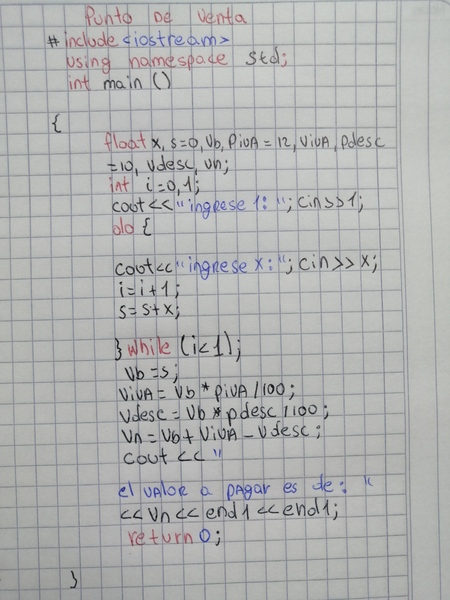 Punto De Venta
#include <iostream>
using namespace std;
int main ()
{
float x, s=0, Vb, PiVA = 12, ViVA, Pdesc
=10, Vdesc, Vn;
int i=0, 1;
cout << "ingrese 1: "; cin>>1;
do {
cout<< "ingrese x: "; cin >> x;
i = i+1;
s = s+x;
} while (i<1);
Vb = s;
ViVA = Vb * piVA /100;
Vdesc = Vb * pdesc /100;
Vn = Vb + ViVA - Vdesc;
cout << "
el VALOR a PAGAR es de: "
<< Vn << end1 << end1;
return 0;
}